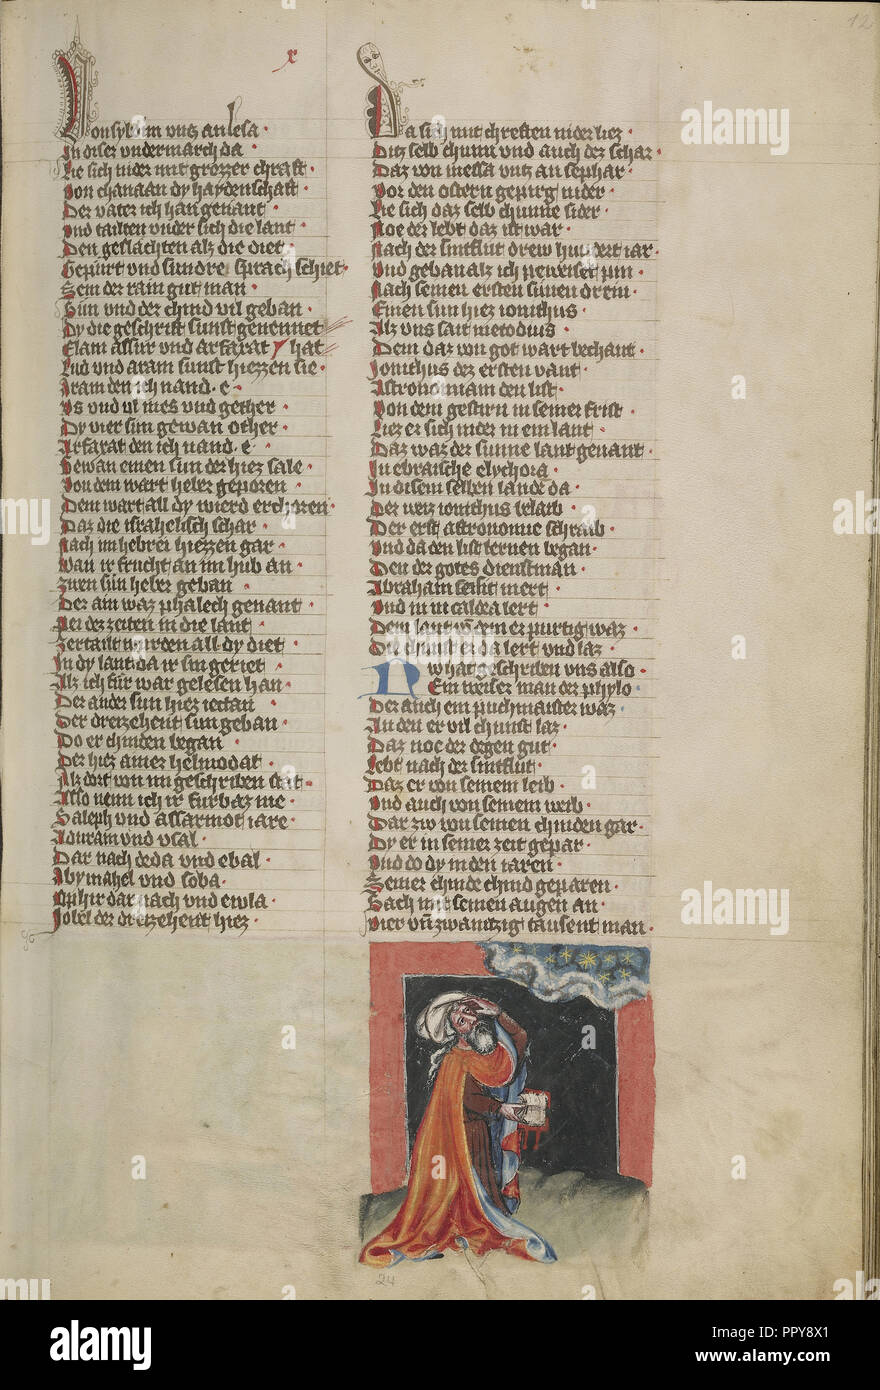 x
12
Von sydon vntz an lesa
In diser vndermarch da
Lie sich nider mit grozzer chraft
Von chanaan dy haydenschaft
Der vater ich han genant
Vnd tailten vnder sich die lant
Den geslachten alz die diet
Gepurt vnd sundre sprach schiet
Sem der rain gut man
Sun vnd der chind vil geban
Dy die geschrift sunst genennet
Elam assur vnd arfarat hat
Lud vnd aram sunst hiezzen sie
Aram den ich nand e
Vs vnd ul mes vnd gether
Dy vier sun gewan other
Arfarat den ich nand e
Gewan einen sun der hiez sale
Von dem wart heber geporen
Dem wart all dy wierd erchoren
Daz die israhelisch schar
Nach im hebrei hiezzen gar
Wan ir frucht an im hub an
Zwen sun heber geban
Der ain waz phalech genant
Pei der zeiten in die lant
Zertailt wurden all dy diet
In dy lant da ir sin geriet
Alz ich fur war gelesen han
Der ander sun hiez iectan
Der dreizehent sun geban
Do er chinden began
Der hiez ainer helmodat
Alz dort von im geschriben stat
Also nenn ich ir furbaz me
Saleph vnd assarmot iare
Aduram vnd vsal
Dar nach deda vnd ebal
Abymahel vnd soba
Ophir dar nach vnd ewla
Jobel der dreizehent hiez
Da sich mit chreften nider liez
Ditz selb chunn vnd auch der schar
Daz von messa vntz an sephar
Vor den ostern gepirg nider
Lie sich daz selb chunne sider
Noe der lebt daz ist war
Nach der sintflut drew hundert iar
Vnd geban alz ich pewiset pin
Nach seinen ersten sunen drein
Einen sun hiez ionichus
Alz vns sait metodius
Dem daz von got wart bechant
Jonichus der ersten vant
Astronomiam den list
Von dem gestirn in seiner frist
Liez er sich nider in ein lant
Daz waz der sunne lant genant
In ebraische elychora
In disem selben lande da
Der weiz ionichus belaib
Der erst astronomie schraib
Vnd da den list lernen began
Den der gotes dienstman
Abraham seist mert
Vnd in in caldea lert
Dem lant vnd dem er purtig waz
Die chunst er da lert vnd laz
Nv hat geschriben vns also
Ein weiser man der phylo
Der auch ein puchmaister waz
An den er vil chunst laz
Daz noe der degen gut
Lebt nach der sintflut
Daz er von seinem leib
Vnd auch von seinem weib
Dar zw von seinen chinden gar
Dy er in seiner zeit gepar
Vnd do dy in den iaren
Seiner chinde chind geparen
Sach mit seinen augen an
Vier vnd zwantzig tausent man
24
alamy
Image ID: PPY8X1
www.alamy.com